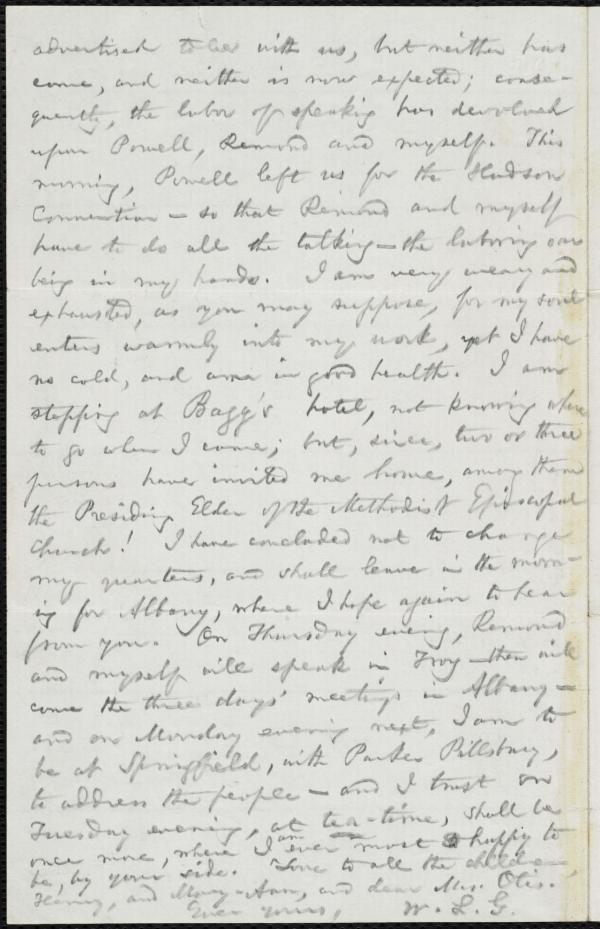 advertised to be with us, but neither has
come, and neither is now expected; conse-
quently, the labor of speaking has devolved
upon Powell, Remond and myself. This
morning, Powell left us for the Hudson
Convention — so that Remond and myself
have to do all the talking — the laboring oar
being in my hands. I am very weary and
exhausted, as you may suppose, for my soul
enters warmly into my work, yet I have
no cold, and am in good health. I am
stopping at Bagg's hotel, not knowing where
to go when I came; but, since, two or three
persons have invited me home, among them
the Presiding Elder of the Methodist Episcopal
Church! I have concluded not to change
my quarters, and shall leave in the morn-
ing for Albany, where I hope again to hear
from you. On Thursday evening, Remond
and myself will speak in Troy — then will
come the three days' meetings in Albany —
and on Monday evening next, I am to
be at Springfield, with Parker Pillsbury,
to address the people — and I trust on
Tuesday evening, at tea-time, shall be
once more, where I am ever most happy to
be, by your side. Love to all the children,
Henry, and Mary-Ann, and dear Mrs. Otis.
Ever yours, W. L. G.